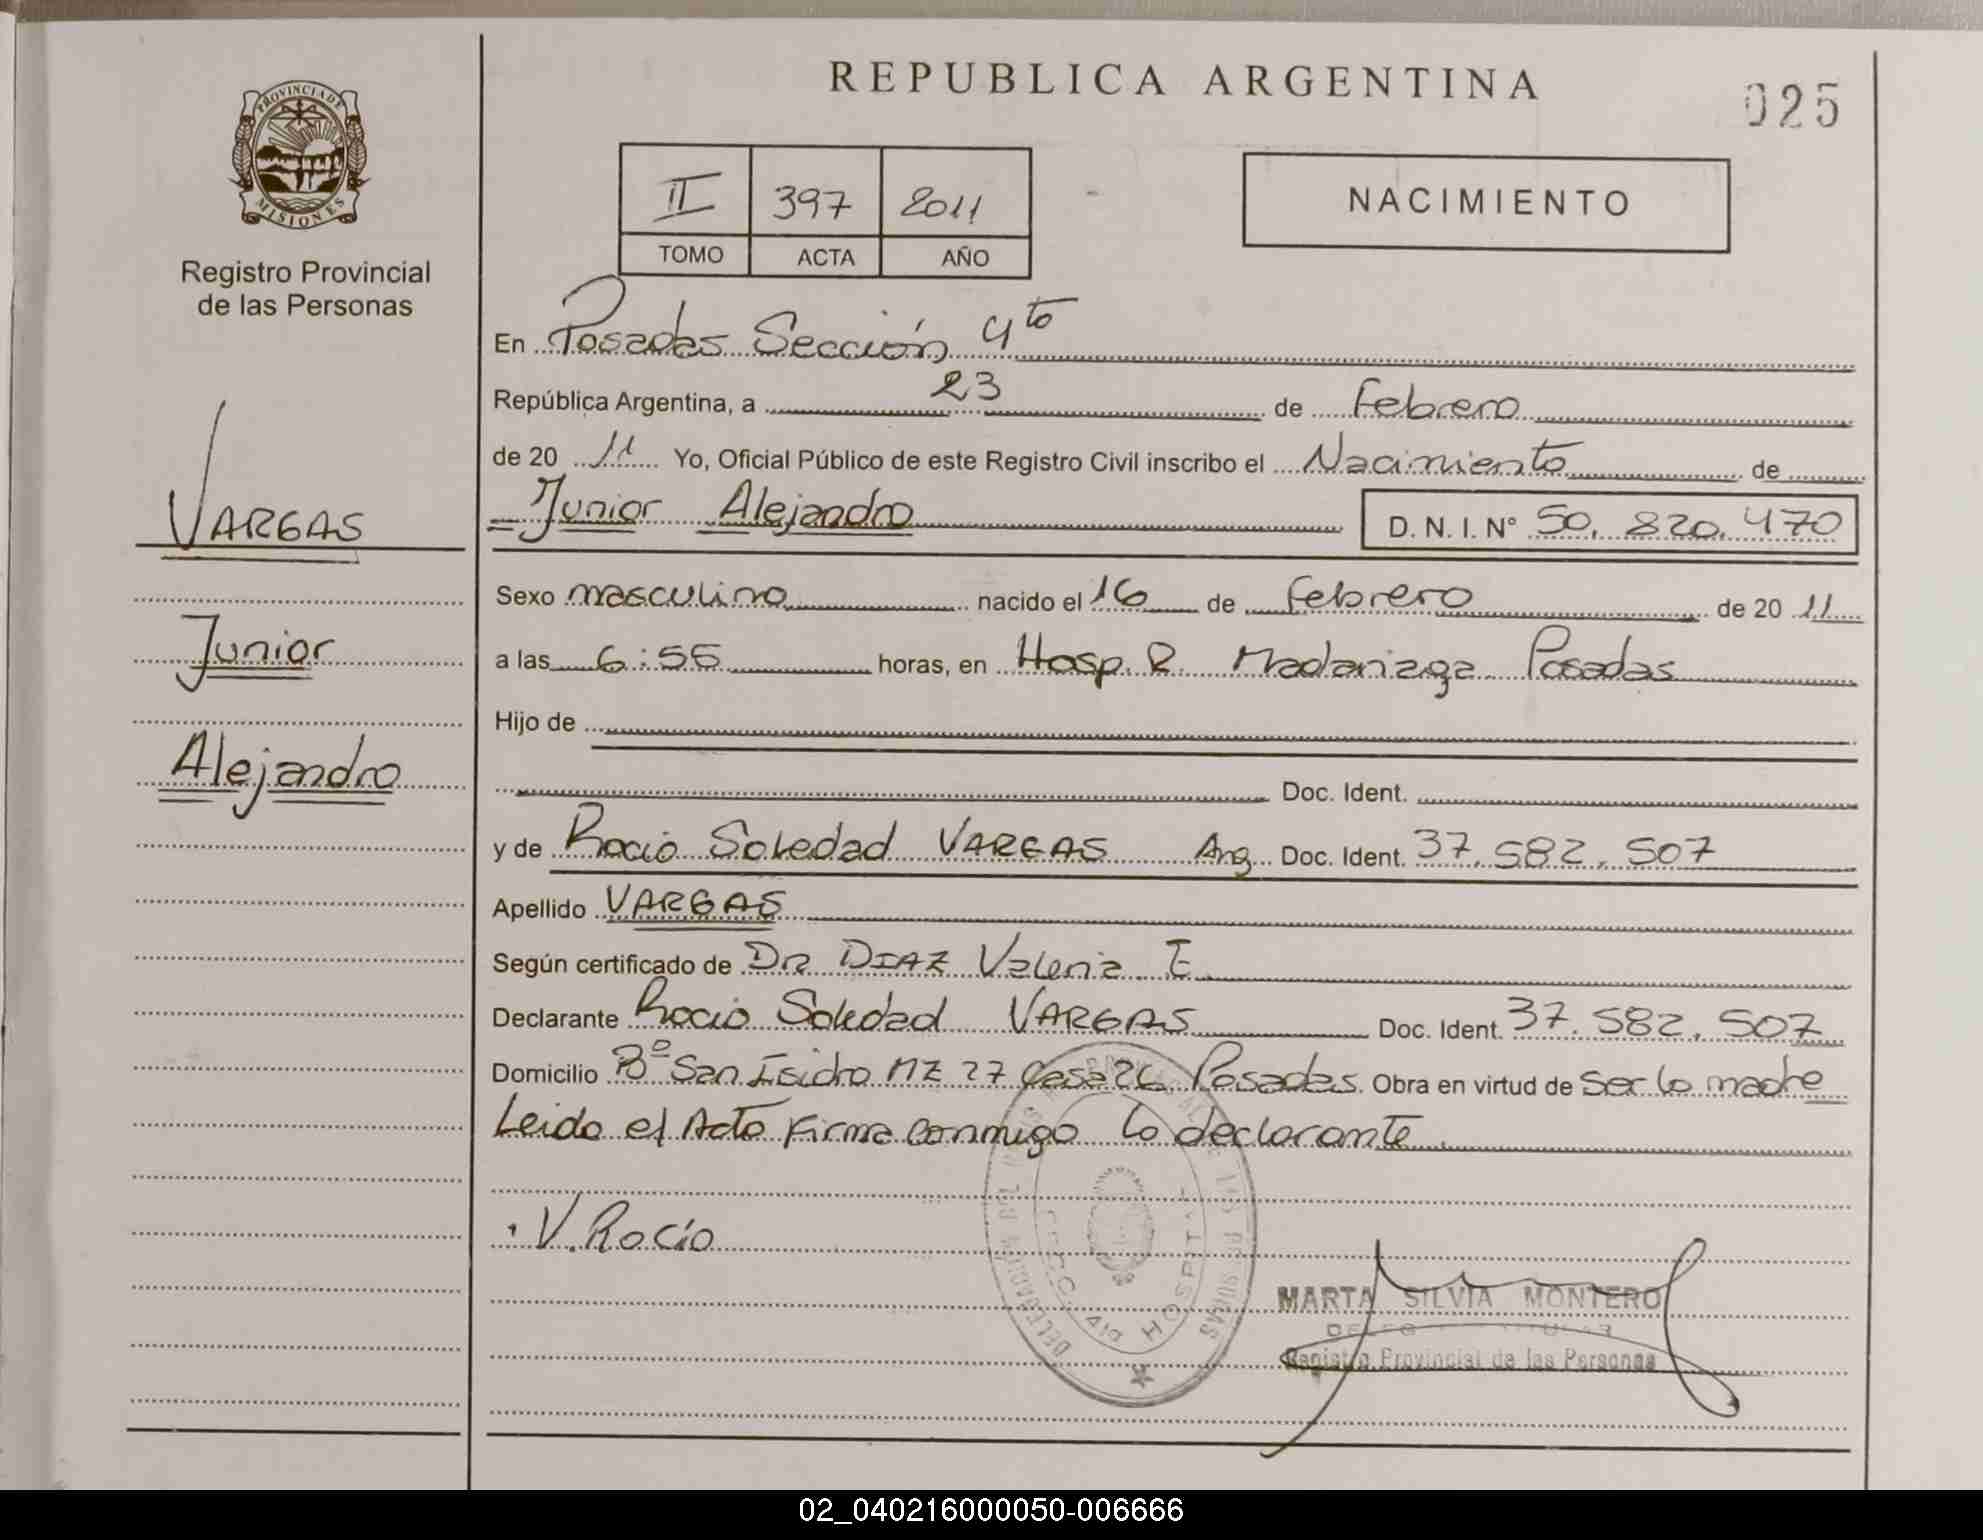 REPUBLICA ARGENTINA
025
PROVINCIA DE
MISIONES
Registro Provincial
de las Personas
II 397 2011
TOMO ACTA AÑO
NACIMIENTO
VARGAS
Junior
Alejandro
En Posadas Sección 4to
República Argentina, a 23 de Febrero
de 20 11 Yo, Oficial Público de este Registro Civil inscribo el Nacimiento de
Junior Alejandro D. N. I. N° 50.820.470
Sexo masculino nacido el 16 de Febrero de 20 11
a las 6:55 horas, en Hosp. R. Madariaga Posadas
Hijo de
Doc. Ident.
y de Rocio Soledad VARGAS Arg. Doc. Ident. 37.582.507
Apellido VARGAS
Según certificado de DRA DIAZ Valeria E.
Declarante Rocio Soledad VARGAS Doc. Ident. 37.582.507
Domicilio Bº San Isidro MZ 27 Casa 26 Posadas. Obra en virtud de Ser la madre
Leido el Acta Firma conmigo la declarante.
V. Rocío
HOSPITAL
MARTA SILVIA MONTERO
Registro Provincial de las Personas
02_040216000050-006666